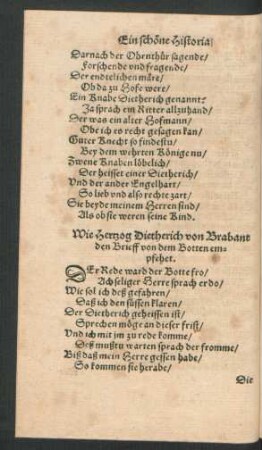 Ein schöne Historia/
Darnach der Obenthür sagende/
Forschende vnd fragende/
Der endtelichen märe/
Ob da zu Hofe were/
Ein Knabe Dietherich genannt?
Ja sprach ein Ritter allzuhand/
Der was ein alter Hofmann/
Obe ich es recht gesagen kan/
Guter Knecht so findestu/
Bey dem wehrten Könige nu/
Zwene Knaben löbelich/
Der heisset einer Dietherich/
Vnd der ander Engelhart/
So lieb vnd also rechte zart/
Sie beyde meinem Herren sind/
Als ob sie weren seine Kind.
Wie Hertzog Dietherich von Brabant
den Brieff von dem Botten em-
pfehet.
DEr Rede ward der Botte fro/
Ach seliger Herre sprach er do/
Wie sol ich deß gefahren/
Daß ich den süssen klaren/
Der Dietherich geheissen ist/
Sprechen möge an dieser frist/
Vnd ich mit jm zu rede komme/
Deß mustu warten sprach der fromme/
Biß daß mein Herre gessen habe/
So kommen sie herabe/
Die